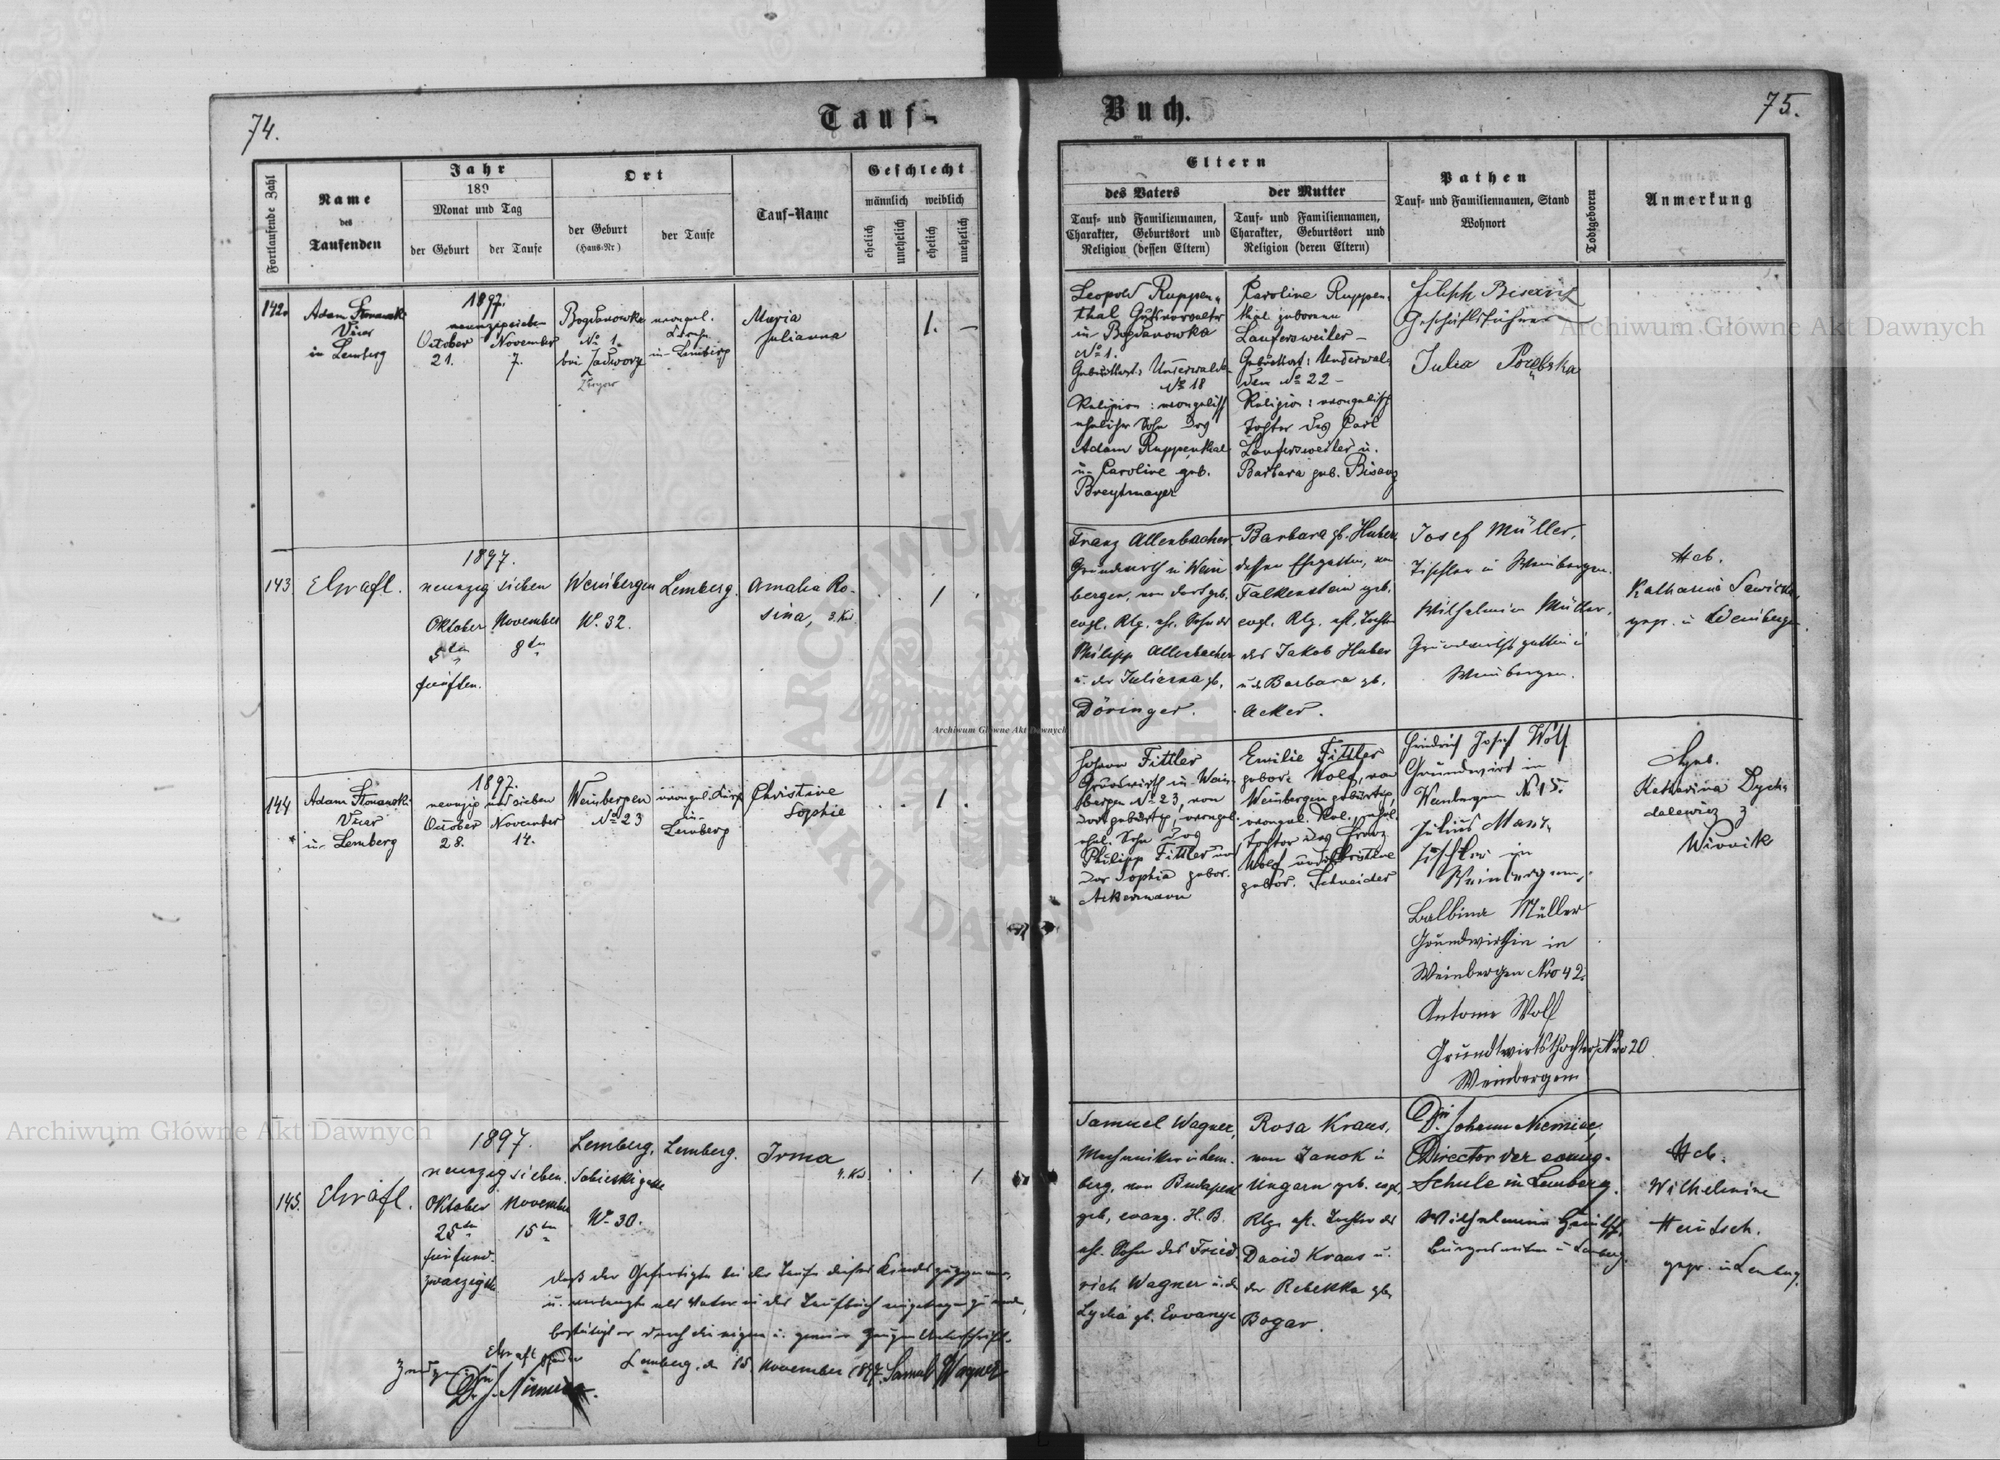 74.
Tauf-
Fortlaufende Zahl
Name
des
Taufenden
Jahr
189
Monat und Tag
der Geburt
der Taufe
Ort
der Geburt
(Haus-Nr)
der Taufe
Tauf-Name
Geschlecht
männlich
weiblich
ehelich
unehelich
ehelich
unehelich
142.
Vicar
in Lemberg
1897.
October
21.
November
7.
Bogdanowka
No 1.
bei
evangel.
Kirche
in Lemberg
Maria
Julianna
1.
143
1897.
neunzig sieben
Oktober
5ten
fünften.
November
8ten
Weinbergen
No. 32.
Lemberg.
Amalia Ro-
sina,
1
144
Vicar
in Lemberg
1897.
neunzig und sieben
October
28.
November
14.
Weinbergen
No 23
evangel. Kirche
in
Lemberg
Christine
Sophie
1
145.
1897.
neunzig sieben
Oktober
25ten
fünfund-
zwanzigsten
November
15ten
Lemberg,
Sobieskigasse
No. 30.
Lemberg.
Irma
1
daß der Gefertigte bei der Taufe dieses Kindes zugegen war
u. verlangte als Vater in das Taufbuch eingetragen zu werden,
bestätigt er durch die eigene u. zweier Zeugen Unterschrift.
Lemberg, den 15. November 1897. Samuel Wagner
Buch.
75.
Eltern
des Vaters
Tauf- und Familiennamen,
Charakter, Geburtsort und
Religion (dessen Eltern)
der Mutter
Tauf- und Familiennamen,
Charakter, Geburtsort und
Religion (deren Eltern)
Pathen
Tauf- und Familiennamen, Stand
Wohnort
Todtgeboren
Anmerkung
Leopold Ruppen-
thal Gutsverwalter
in Bogdanowka
No 1.
Geburtsort: Unterwalden
No 18
Religion: evangelisch
ehelicher Sohn des
Adam Ruppenthal
u. Caroline geb.
Breytmayer
Caroline Ruppen-
thal geborene
Laufersweiler
Geburtsort: Unterwal-
den No 22
Religion: evangelisch
Tochter des Carl
Laufersweiler u.
Barbara geb. Bisanz
Filipp Bisanz
Geschäftsführer
Julia Porębska
Franz Allenbacher
Grundwirth in Wein
bergen, von dort geb.
evgl. Rlg. ehl. Sohn des
Philipp Allenbacher
u. der Juliana gb.
Döringer.
Barbara gb. Huber,
dessen Ehegattin, von
Falkenstein geb.
evgl. Rlg. ehl. Tochter
des Jakob Huber
u. d. Barbara gb.
Acker.
Josef Müller,
Tischler in Weinbergen.
Wilhelmine Müller,
Grundwirthsgattin in
Weinbergen.
Heb.
Katharina
gepr. in Weinbergen.
Johann Fittler
Grundwirth in Wein-
bergen No 23, von
dort gebürtig, evangel.
ehel. Sohn des
Philipp Fittler und
der Sophia gebor.
Ackermann
Emilie Fittler
gebor. Wolf, von
Weinbergen gebürtig,
evangel. Rel., ehel.
Tochter des Franz
Wolf und Christine
gebor. Schneider
Friedrich Josef Wolf
Grundwirt in
Weinbergen No 15.
Julius
Tischler in
Weinbergen.
Balbina Müller
Grundwirthin in
Weinbergen Nro 42.
Antonie Wolf
Grundwirtstochter Nro 20
Weinbergen
Heb.
Katharina
Winniki
Samuel Wagner,
Mechaniker in Lem-
berg, von Budapest
geb, evang. H. B.
ehl. Sohn des Fried-
rich Wagner u. der
Lydia gb.
Rosa Kraus,
von Janok in
Ungarn geb. evgl.
Rlg. ehl. Tochter des
David Kraus u.
der Rebekka gb.
Bogar.
Dr. Johann
Director der evang.
Schule in Lemberg.
Wilhelmine
in Lemberg.
Heb.
Wilhelmine
Heutsch.
gepr. in Lemberg.
Archiwum Główne Akt Dawnych
Archiwum Główne Akt Dawnych
Archiwum Główne Akt Dawnych
ARCHIWUM
AKT DAWNYCH